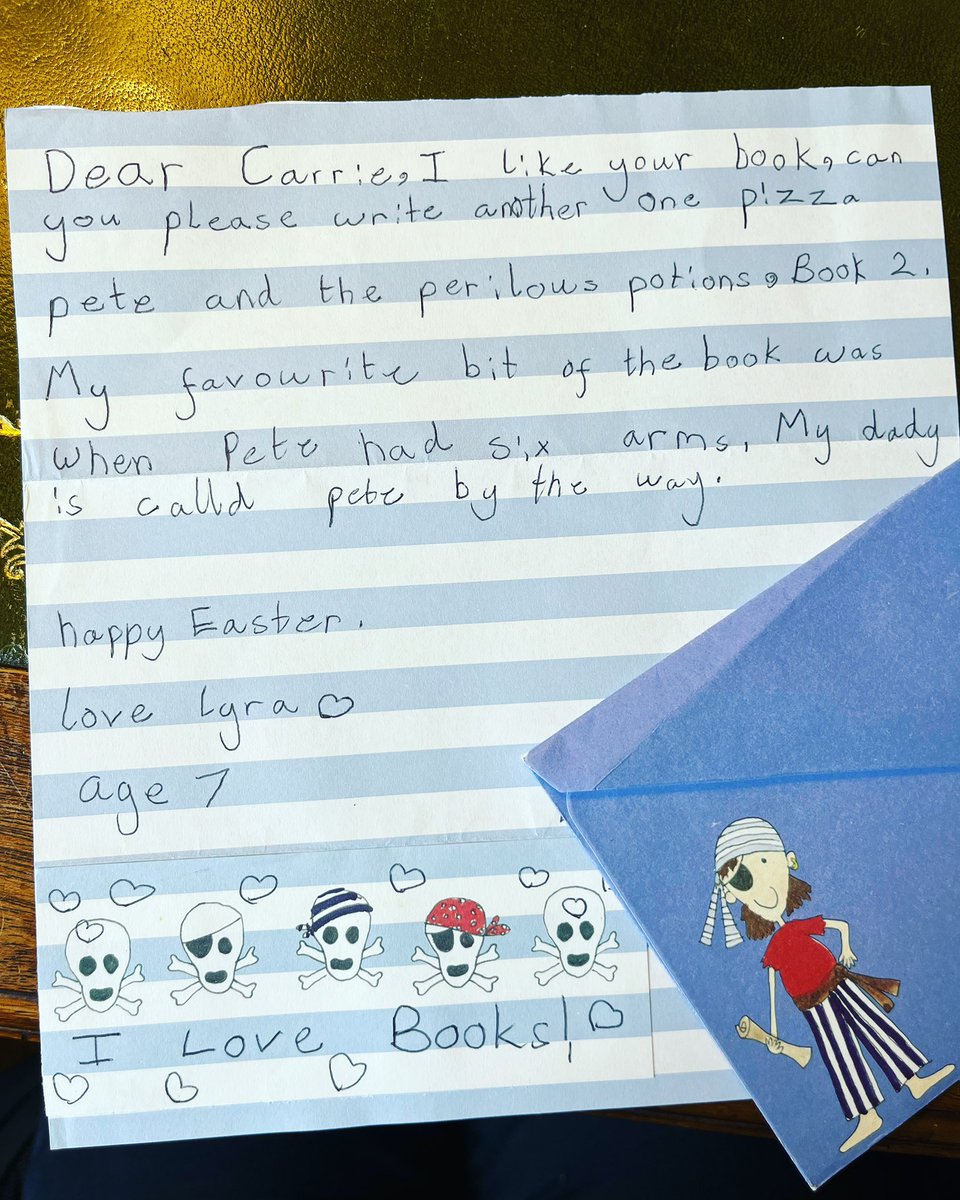 Dear Carrie, I like your book, can
you please write another one pizza
pete and the perilous potions, Book 2.
My favourite bit of the book was
when Pete had six arms, My dady
is calld pete by the way.
happy Easter.
love Lyra
age 7
I Love Books!